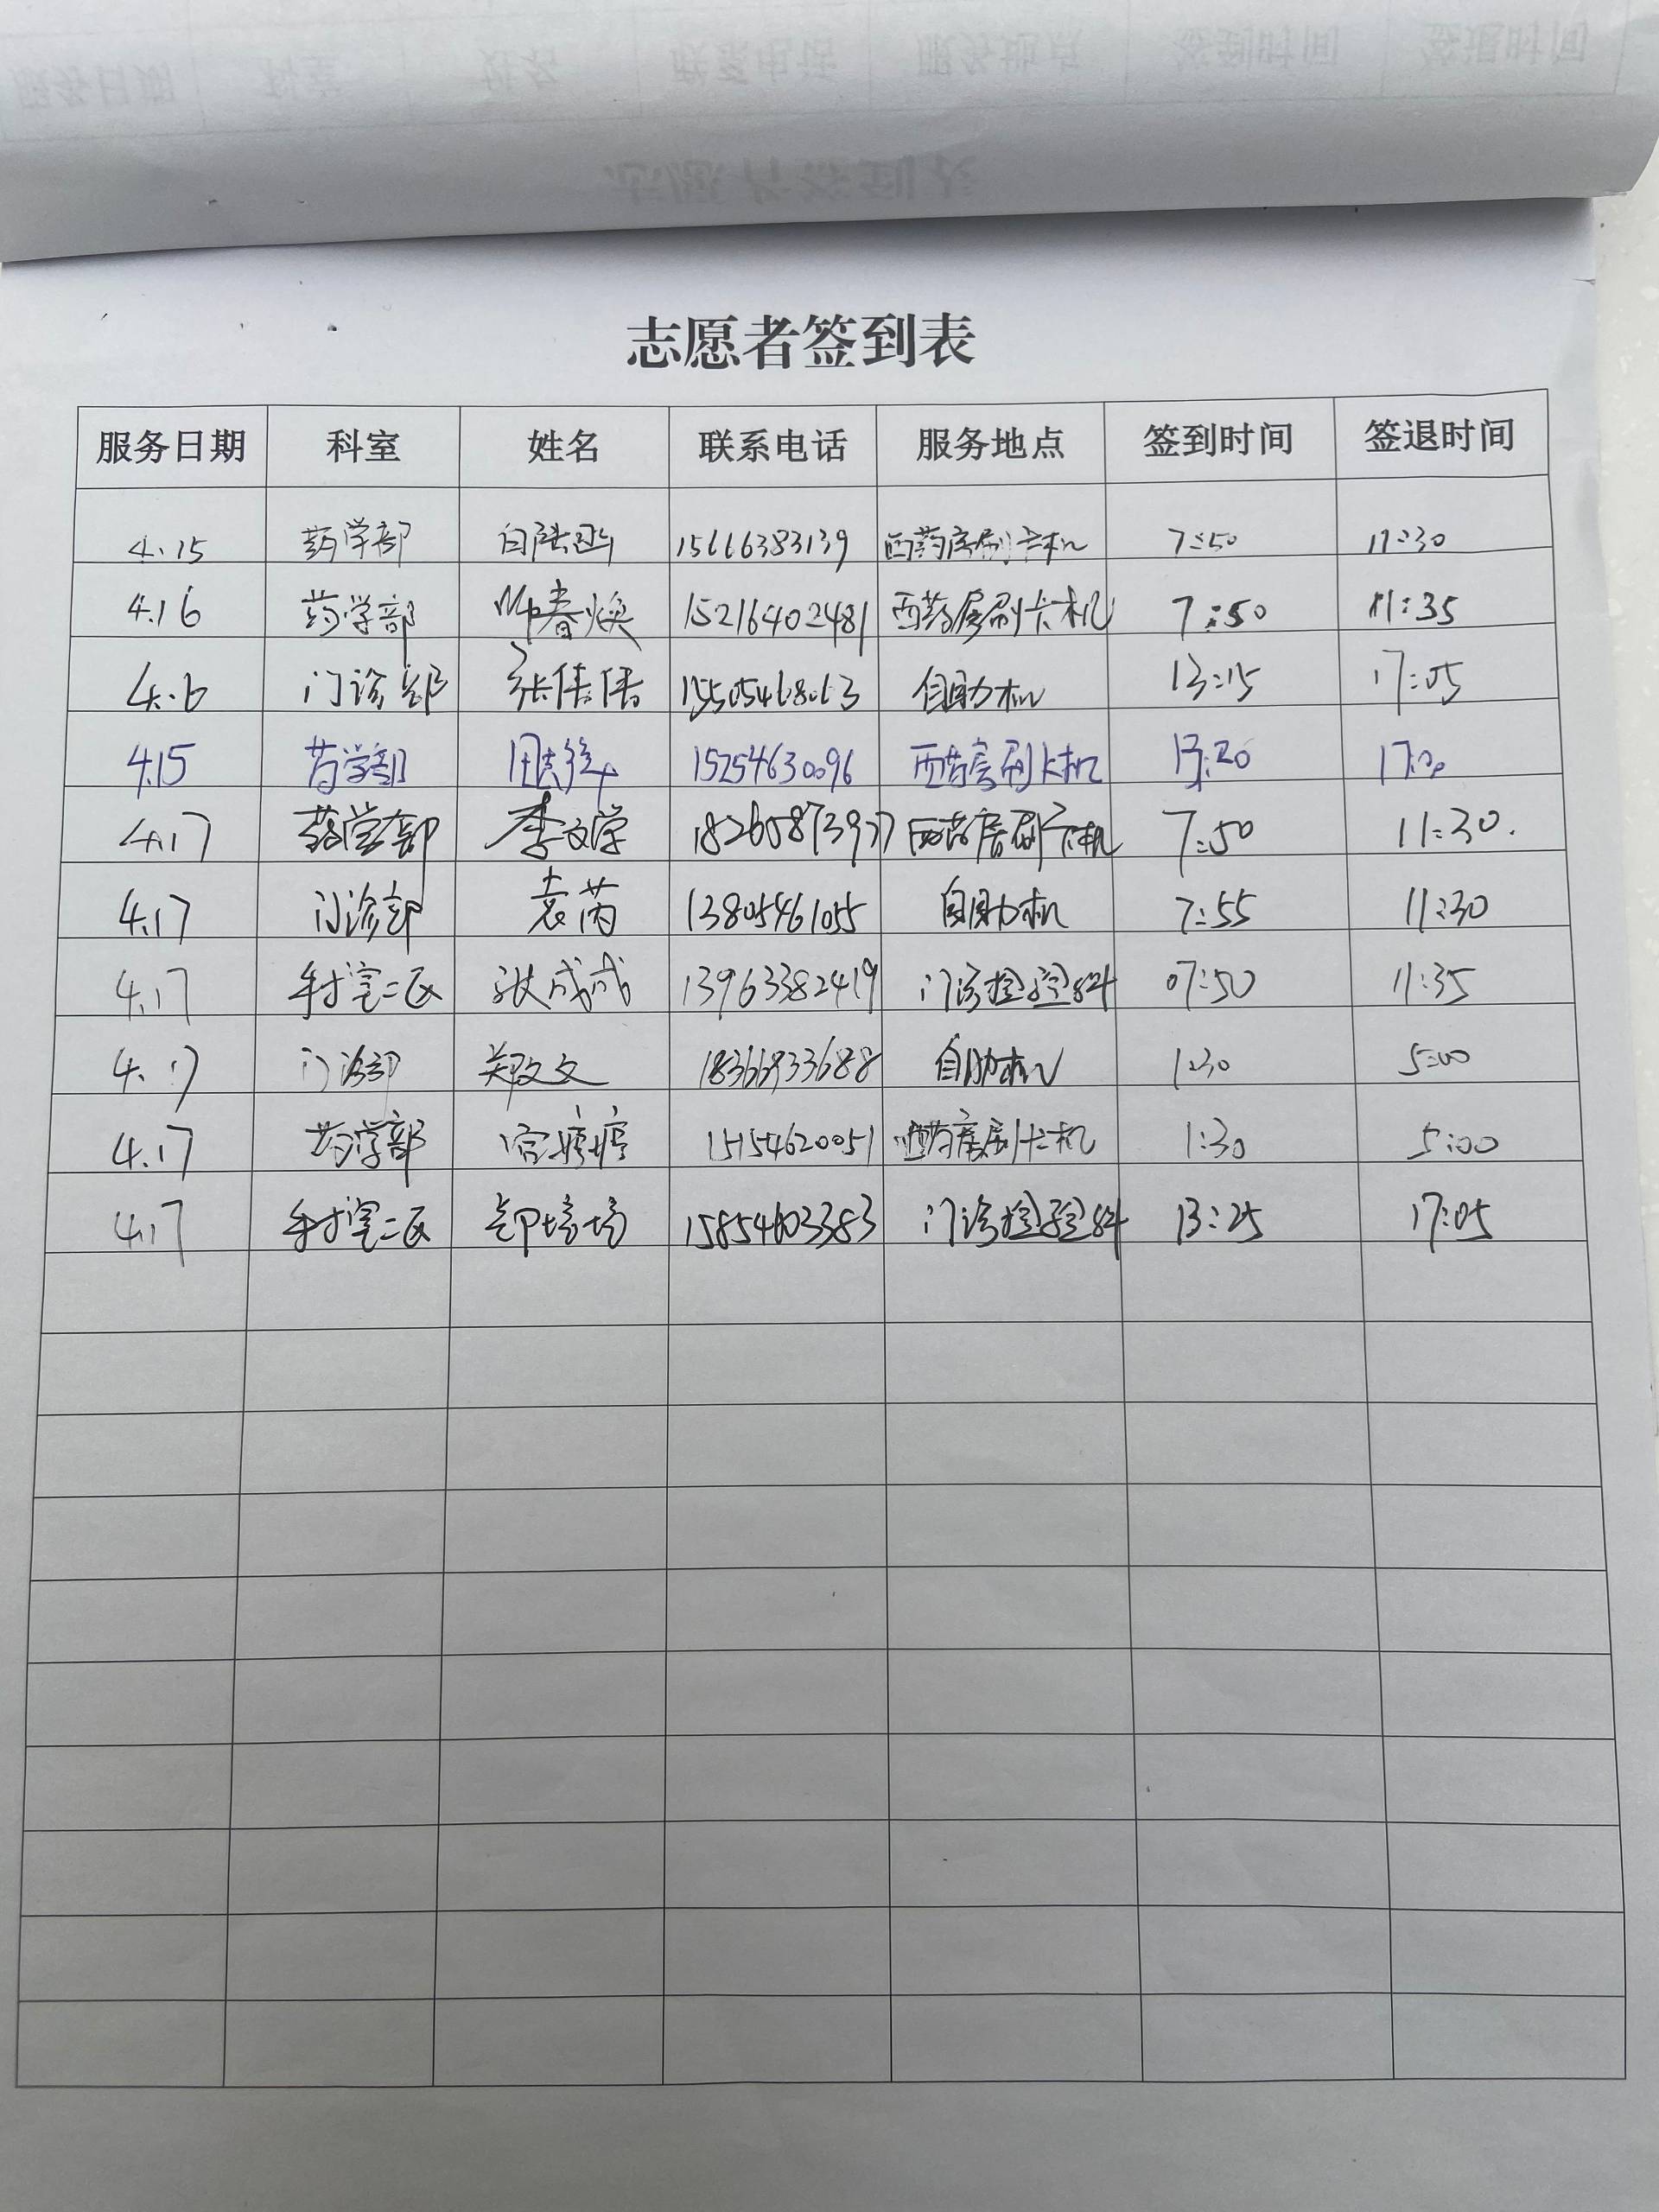 志愿者签到表
服务日期 科室 姓名 联系电话 服务地点 签到时间 签退时间
4.15 药学部 15666383139 西药房刷卡机 7:50 11:30
4.16 药学部 帅春焕 15216402481 西药房刷卡机 7:50 11:35
4.16 门诊部 张倩倩 15505468063 自助机 13:15 17:05
4.15 药学部 15254630096 西药房刷卡机 13:20 17:00
4.17 药学部 李文学 18265873937 西药房刷卡机 7:50 11:30.
4.17 门诊部 袁芮 13805461055 自助机 7:55 11:30
4.17 手术室二区 张成成 13963382419 门诊检验科 07:50 11:35
4.17 门诊部 郑文文 18366933688 自助机 1:30 5:00
4.17 药学部 宫婷婷 15154620051 西药房刷卡机 1:30 5:00
4.17 手术室二区 15854603383 门诊检验科 13:25 17:05